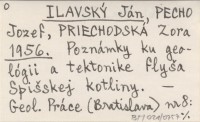 o
ILAVSKÝ Ján, PECHO
Jozef, PRIECHODSKÁ Zora
1956. Poznámky ku geo-
lógii a tektonike flyša
Spišskej kotliny. –
Geol. Práce (Bratislava) nr 8: